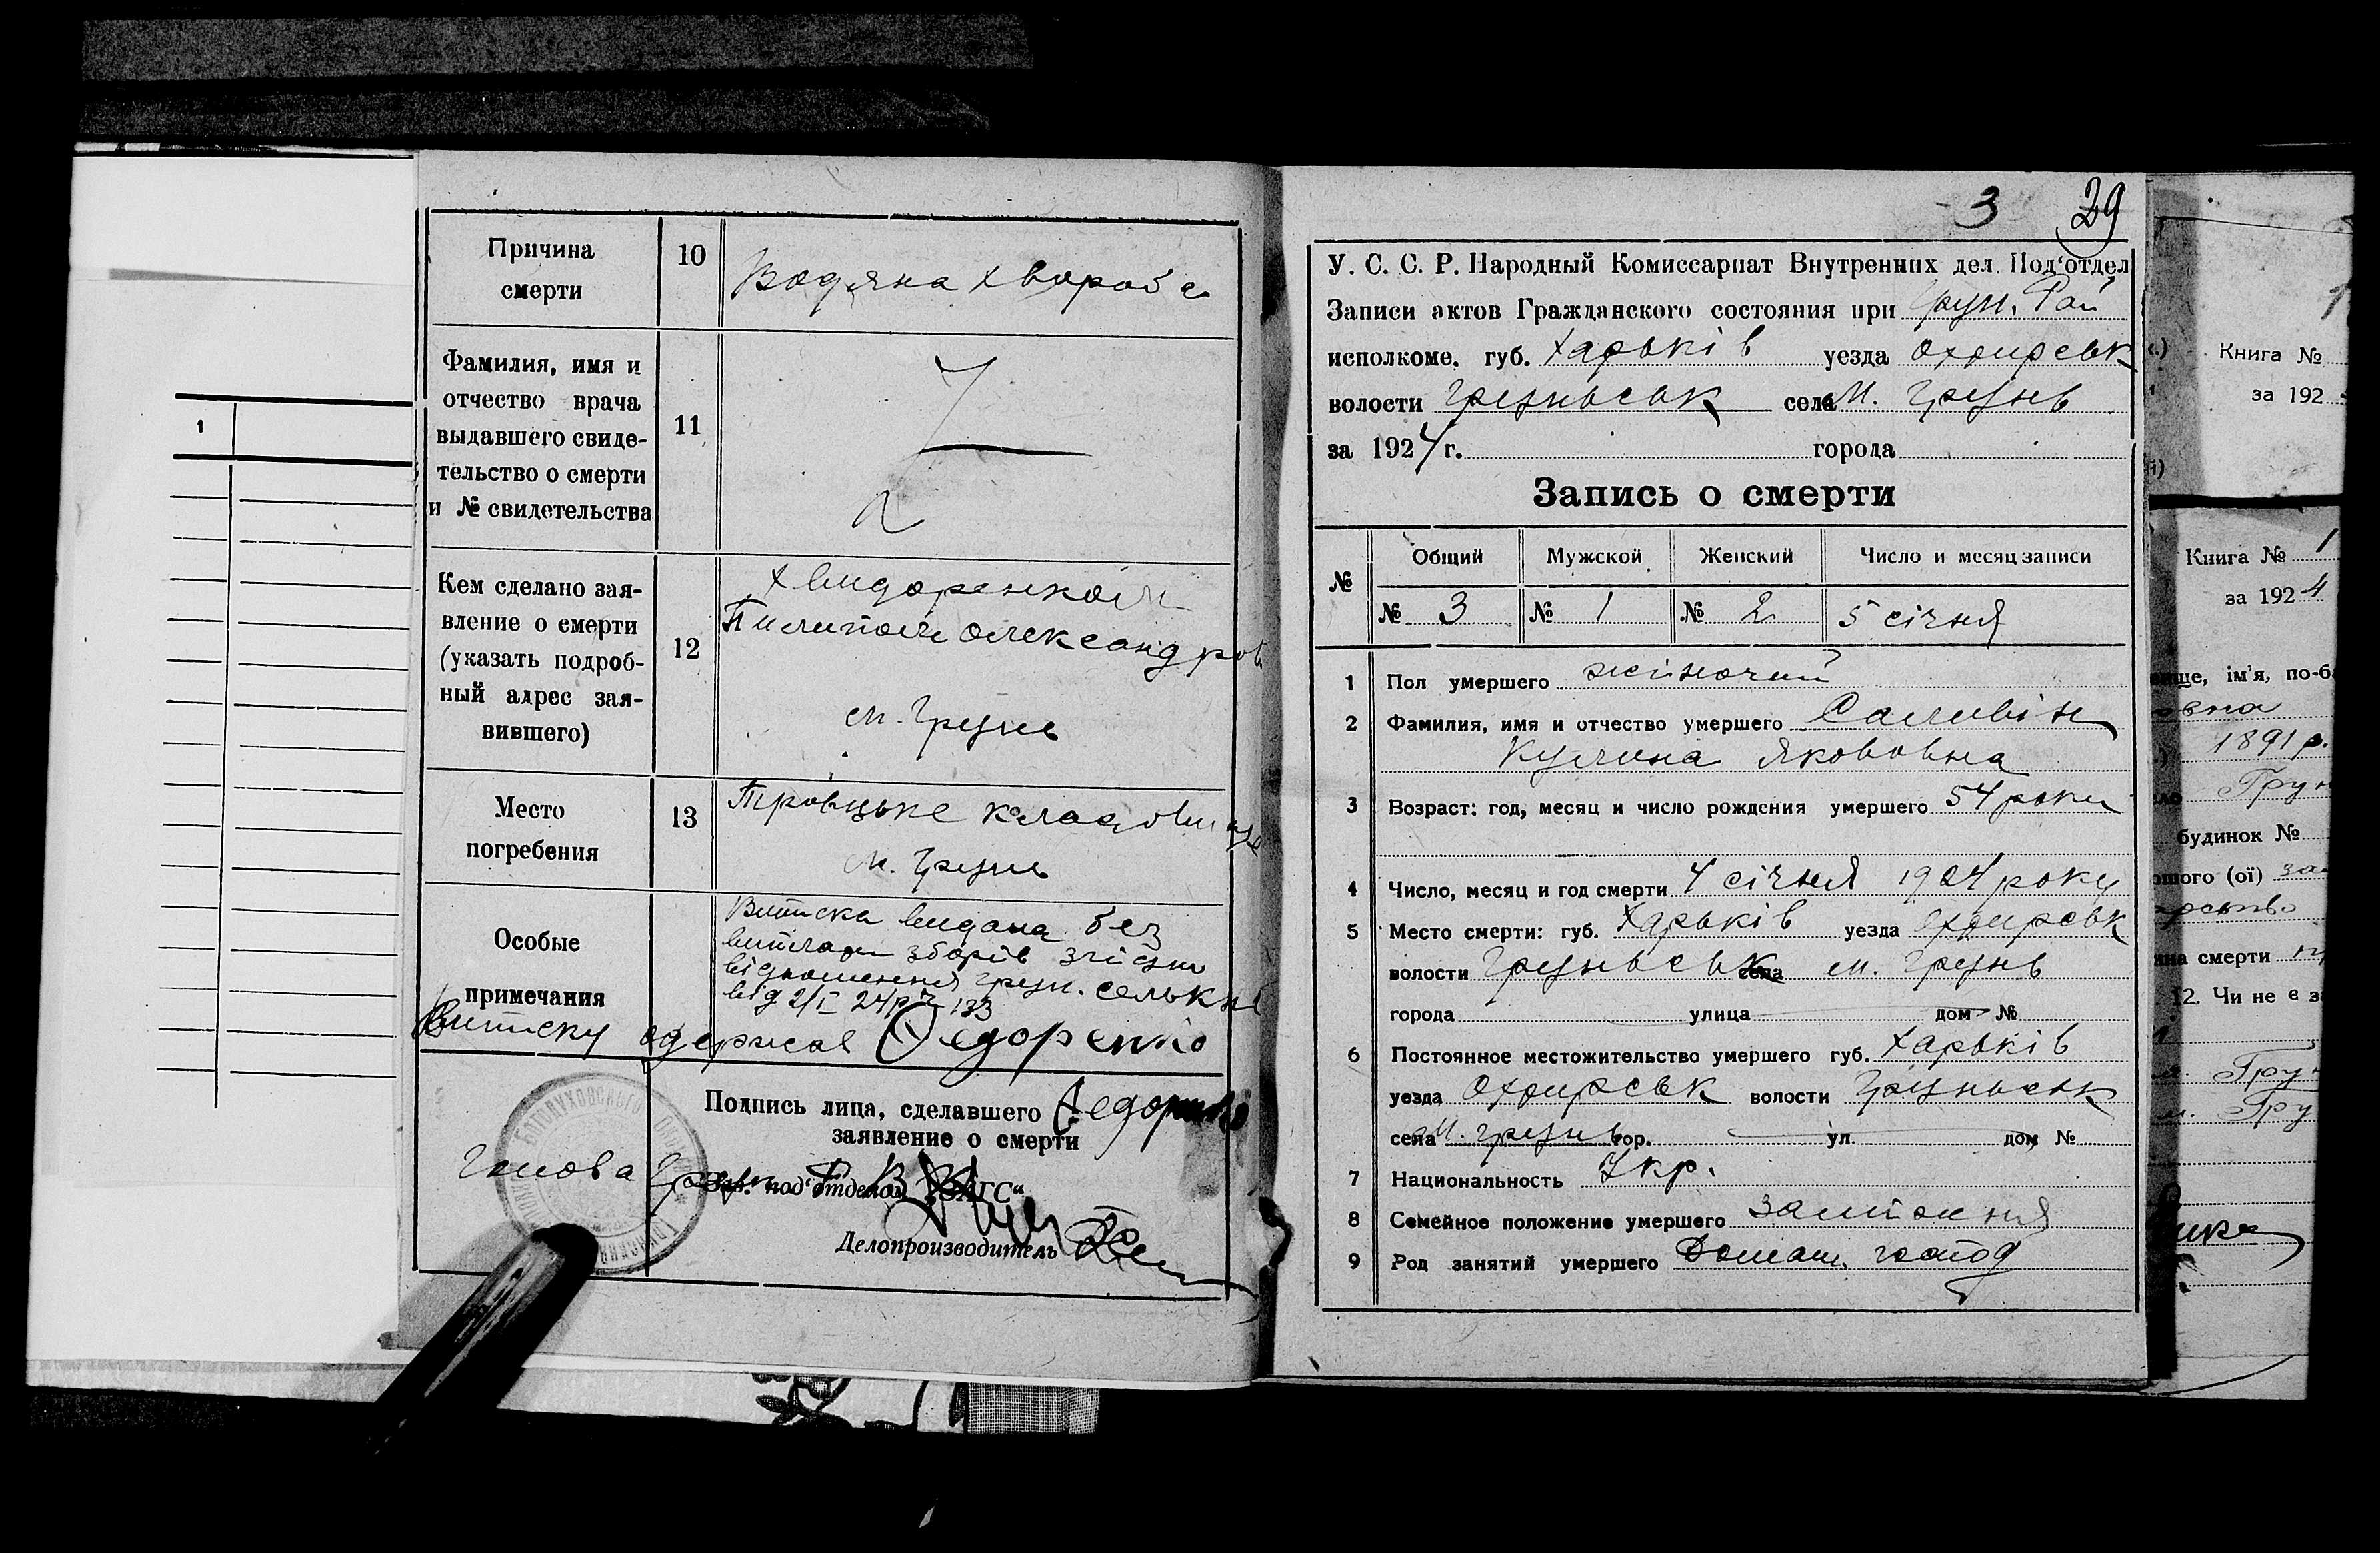 1
Причина
смерти
10
Водяна хвороба
Фамилия, имя и
отчество врача
выдавшего свиде-
тельство о смерти
и № свидетельства
11
Кем сделано зая-
вление о смерти
(указать подроб-
ный адрес зая-
вившего)
12
Хвидоренком
Пилипом Олександров
м. Грунь
Место
погребения
13
Троіцьке кладовище
м. Грунь
Особые
примечания
Виписка видана без
виплати зборів згідно
відношення Грун. сельк
від 2/I 24 р. № 133
Виписку одержав Федоренко
Подпись лица, сделавшего Федоренко
заявление о смерти
Голова Грун. Р В К
Зав. под'отделом „ЗАГС“
Делопроизводитель
3 29
У. С. С. Р. Народный Комиссариат Внутренних дел. Под'отдел
Записи актов Гражданского состояния при Грун. Рай
исполкоме. губ. Харькiв уезда Охтирськ
волости Груньськ села м. Грунь
за 1924 г. города
Запись о смерти
№ Общий Мужской Женский Число и месяц записи
№ 3 № 1 № 2 5 січня
1 Пол умершего жіночий
2 Фамилия, имя и отчество умершего
Кулина Якововна
3 Возраст: год, месяц и число рождения умершего 54 роки
4 Число, месяц и год смерти 4 січня 1924 року
5 Место смерти: губ. Харькiв уезда Охтирськ
волости Груньськ села м. Грунь
города улица дом №
6 Постоянное местожительство умершего губ. Харькiв
уезда Охтирськ волости Груньськ
села м. Грунь гор. ул. дом №
7 Национальность Укр.
8 Семейное положение умершего заміжня
9 Род занятий умершего Домаш. господ
Книга №
за 192
Книга № 1
за 1924
ім'я, по-б
1891 р.
Грун
будинок №
шого (ої)
смерти
12. Чи не є з
Грун
м. Гру